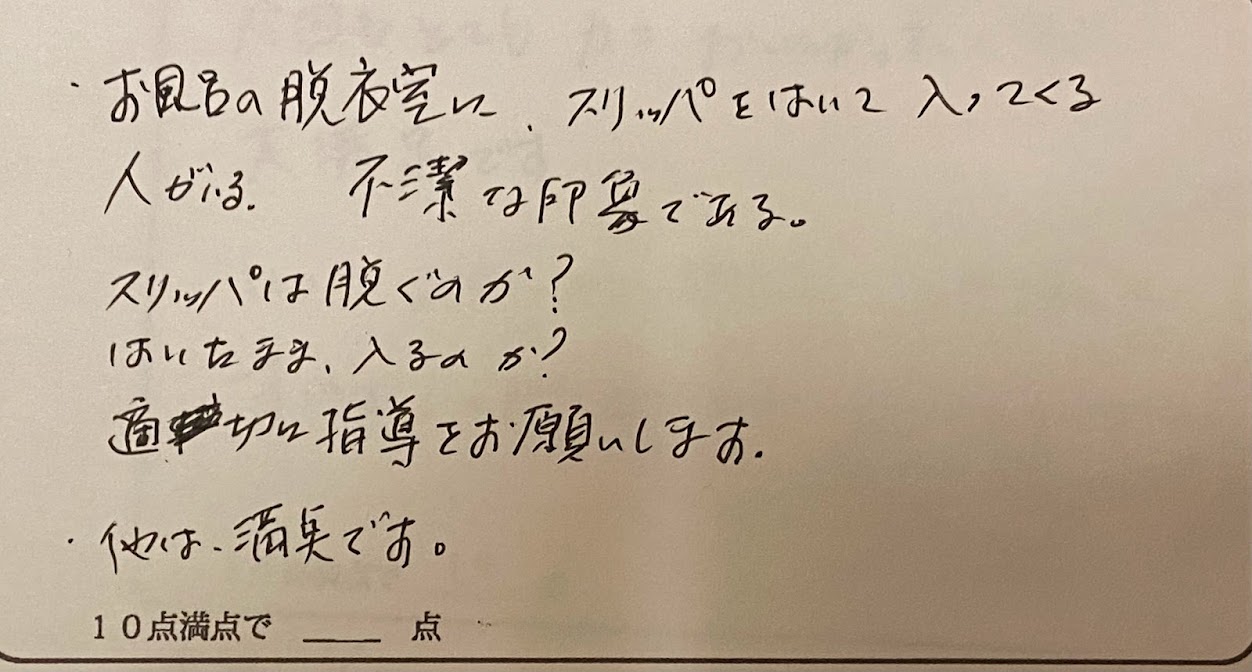 ・お風呂の脱衣室に、スリッパをはいて入ってくる
人がいる。不潔な印象である。
スリッパは脱ぐのか?
はいたまま、入るのか?
適切に指導をお願いします。
・他は、満点です。
10点満点で ____ 点